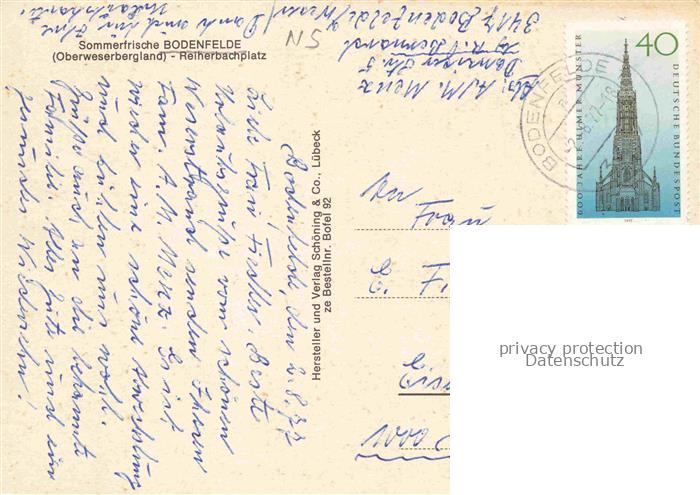 Sommerfrische BODENFELDE
(Oberweserbergland) - Reiherbachplatz
NS
Abs. A./M. Menz
Str. 5
3417 Bodenfelde/Weser
Bodenfelde, den 2.8.77
Liebe Frau Fiedler. Beste
Urlaubsgrüße vom schönen
Weserstrand senden Ihnen
Fam. A. M. Menz. Es ist
wieder eine schöne Abwechslung
und fühlen uns wohl.
Grüße auch an die bekannte
Familie. Alles Gute und ein
gesundes Wiedersehn!
Dank auch für Ihre
Urlaubskarte.
Hersteller und Verlag Schöning & Co., Lübeck
ze Bestellnr. Bofel 92
40
600 JAHRE ULMER MÜNSTER
DEUTSCHE BUNDESPOST
1977
BODENFELDE
An
Frau
E. F
Eise
privacy protection
Datenschutz